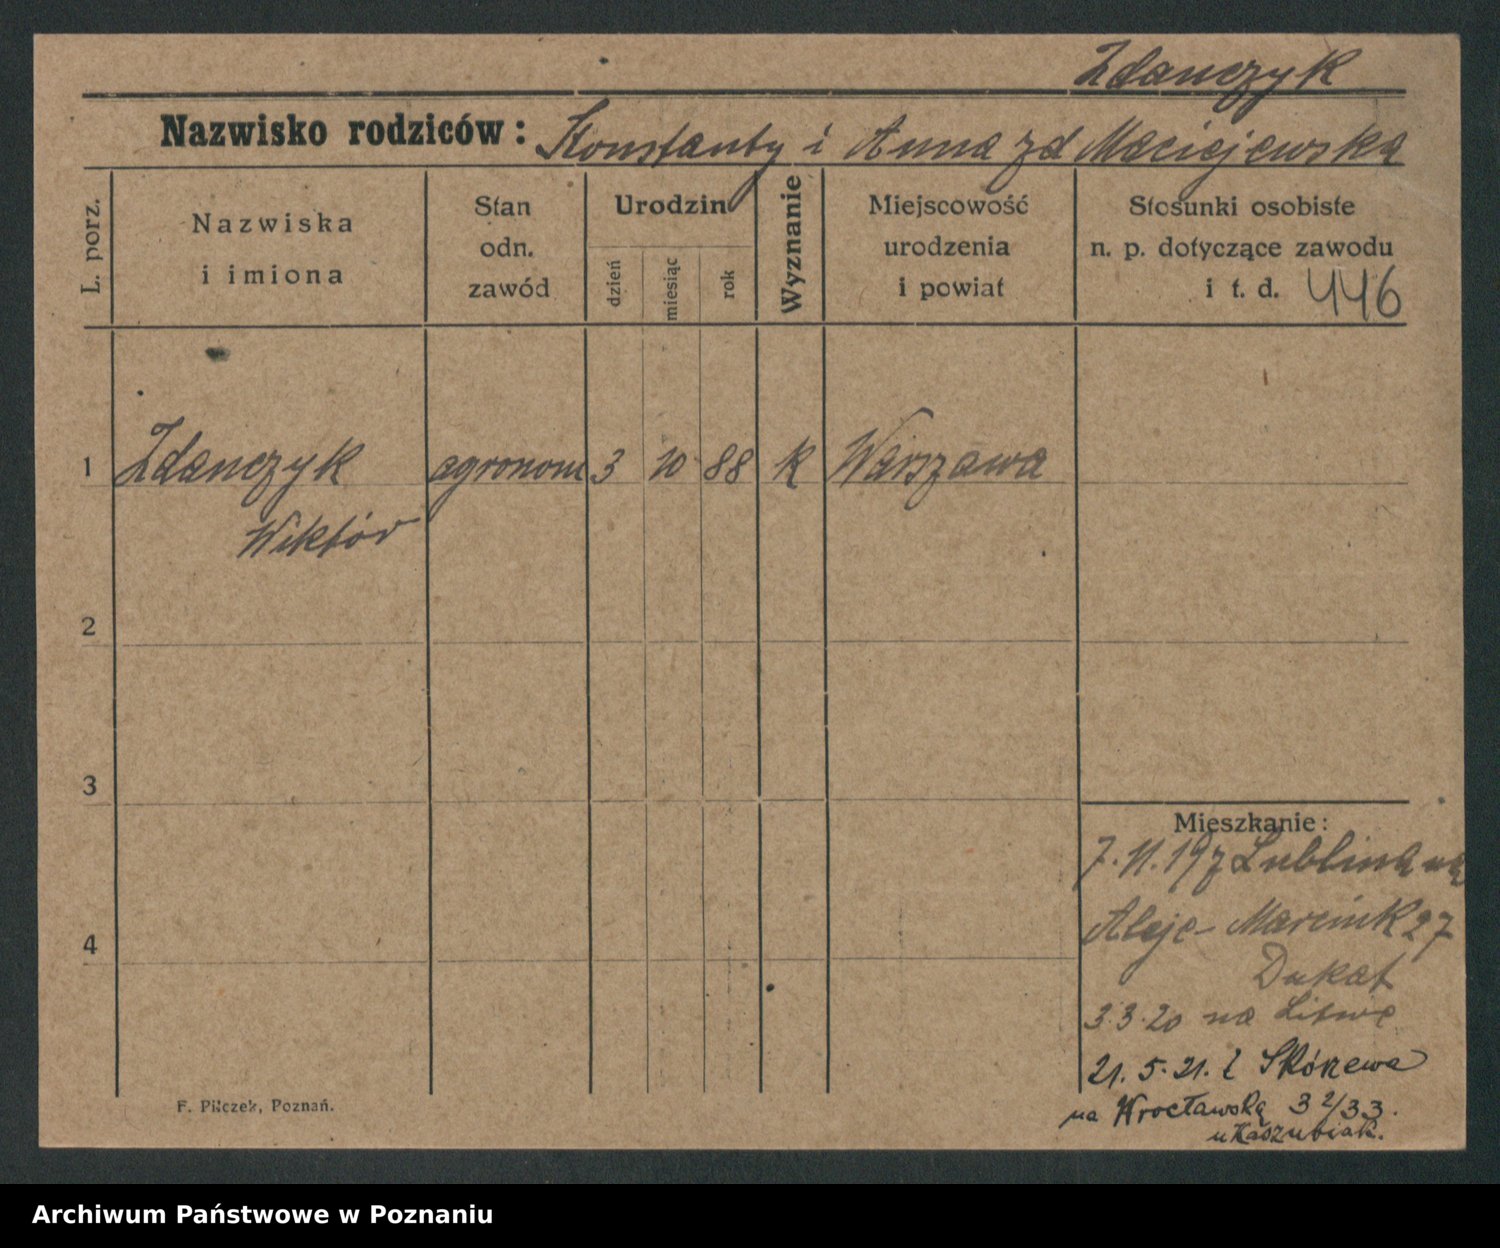 Zdanczyk
Nazwisko rodziców: Konstanty i Anna zd Maciejewska
L. porz.
Nazwiska
i imiona
Stan
odn.
zawód
Urodzin
dzień
miesiąc
rok
Wyznanie
Miejscowość
urodzenia
i powiat
Stosunki osobiste
n. p. dotyczące zawodu
i t. d. 446
1 Zdanczyk agronom 3 10 88 k Warszawa
Wiktór
2
3
4
Mieszkanie:
7. 11. 19 z Lublina na
Aleje Marcink 27
Dukat
3. 3. 20 na Litwę
21. 5. 21. z Skórzewa
na Wrocławską 32/33.
u Kaszubiak.
F. Pilczek, Poznań.
Archiwum Państwowe w Poznaniu